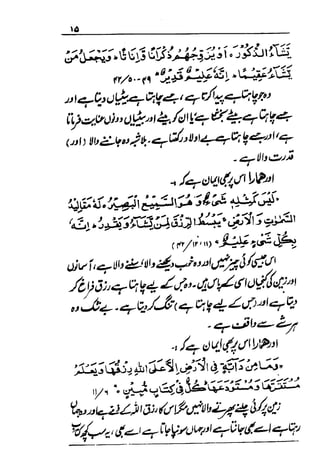 ۱۵
يَّشَآءُ الذُّكُوْرَ ۞ اَوْ يُزَوِّجُهُمْ ذُكْرَانًا وَّاِنَاثًا ۚ وَيَجْعَلُ مَنْ
يَّشَآءُ عَقِيْمًا ۭ اِنَّهٗ عَلِيْمٌ قَدِيْرٌ ۞ ۴۹۔۵۰/۴۲
وہ جو چاہتا ہے پیدا کرتا ہے، جسے چاہتا ہے بیٹیاں دیتا ہے اور
جسے چاہتا ہے بیٹے بخشتا ہے یا ان کو بیٹے اور بیٹیاں دونوں عنایت فرماتا
ہے، اور جسے چاہتا ہے بے اولاد رکھتا ہے۔ بلاشبہ وہ جاننے والا (اور)
قدرت والا ہے۔
اور ہمارا اس پر بھی ایمان ہے کہ :۔
لَيْسَ كَمِثْلِهٖ شَيْءٌ ۚ وَهُوَ السَّمِيْعُ الْبَصِيْرُ ۞ لَهٗ مَقَالِيْدُ
السَّمٰوٰتِ وَالْاَرْضِ ۚ يَبْسُطُ الرِّزْقَ لِمَنْ يَّشَآءُ وَيَقْدِرُ ۭ اِنَّهٗ
بِكُلِّ شَيْءٍ عَلِيْمٌ ۞ (۱۱، ۱۲/۴۲)
اس جیسی کوئی چیز نہیں اور وہ خوب دیکھنے والا، سننے والا ہے، آسمانوں
اور زمین کی کنجیاں اسی کے پاس ہیں۔ وہ جس کے لیے چاہتا ہے، رزق فراخ کر
دیتا ہے اور (جس کے لیے چاہتا ہے) تنگ کر دیتا ہے۔ بے شک وہ
ہر شے سے واقف ہے۔
اور ہمارا اس پر بھی ایمان ہے کہ :۔
وَمَا مِنْ دَآبَّةٍ فِي الْاَرْضِ اِلَّا عَلَى اللّٰهِ رِزْقُهَا وَيَعْلَمُ
مُسْتَقَرَّهَا وَمُسْتَوْدَعَهَا ۭ كُلٌّ فِيْ كِتٰبٍ مُّبِيْنٍ ۞ ۱۱/۶
زمین پر کوئی چلنے پھرنے والا نہیں مگر اس کا رزق اللہ کے ذمے ہے اور وہ جہاں
رہتا ہے، اسے بھی جانتا ہے اور جہاں سونپا جاتا ہے اسے بھی، یہ سب کچھ کتاب